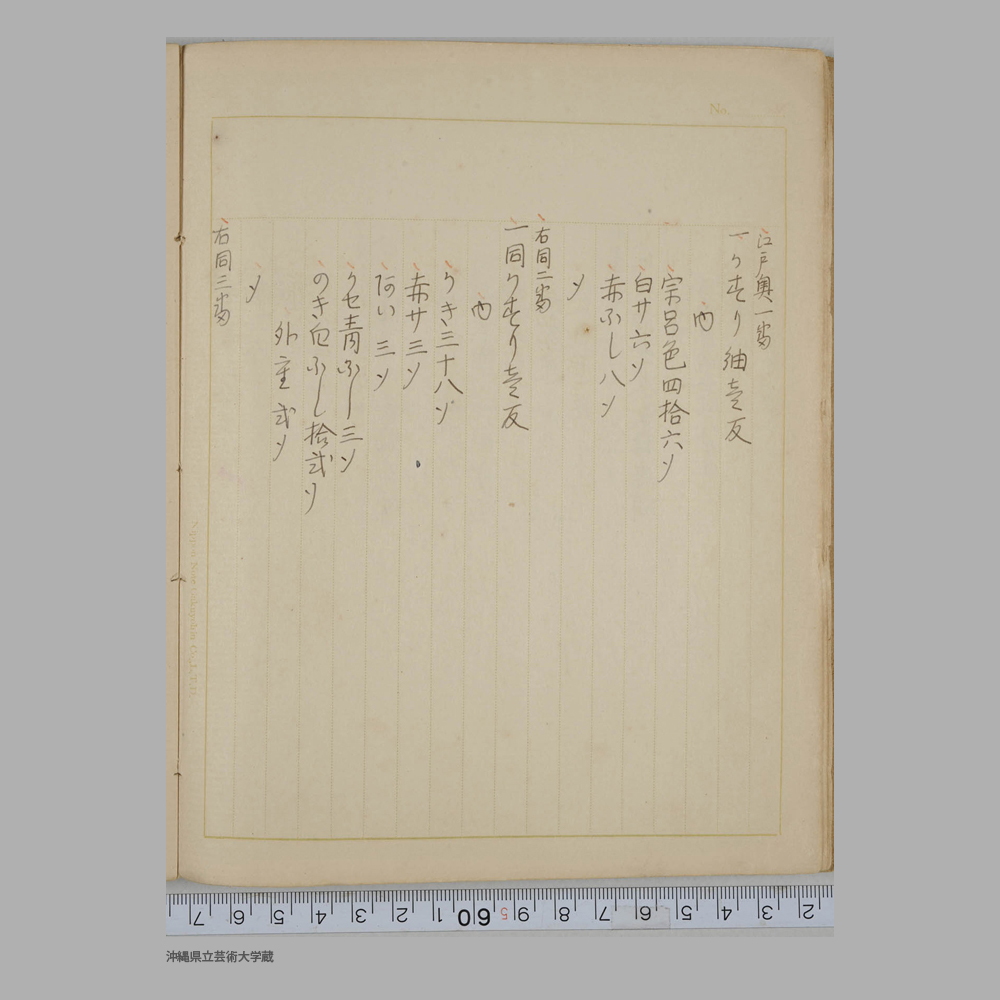 江戸奥一番
一りきり紬壱反
内
宗呂色四拾六ソ
白サ六ソ
赤ふし八ソ
〆
右同二番
一同りきり壱反
内
うき三十八ソ
赤サ三ソ
阿い三ソ
クセ青ふし三ソ
のき白ふし拾弐ソ
外重弐ソ
〆
右同三番
No.
7 6 5 4 3 2 1 60 5 9 8 7 6 5 4 3 2
沖縄県立芸術大学蔵